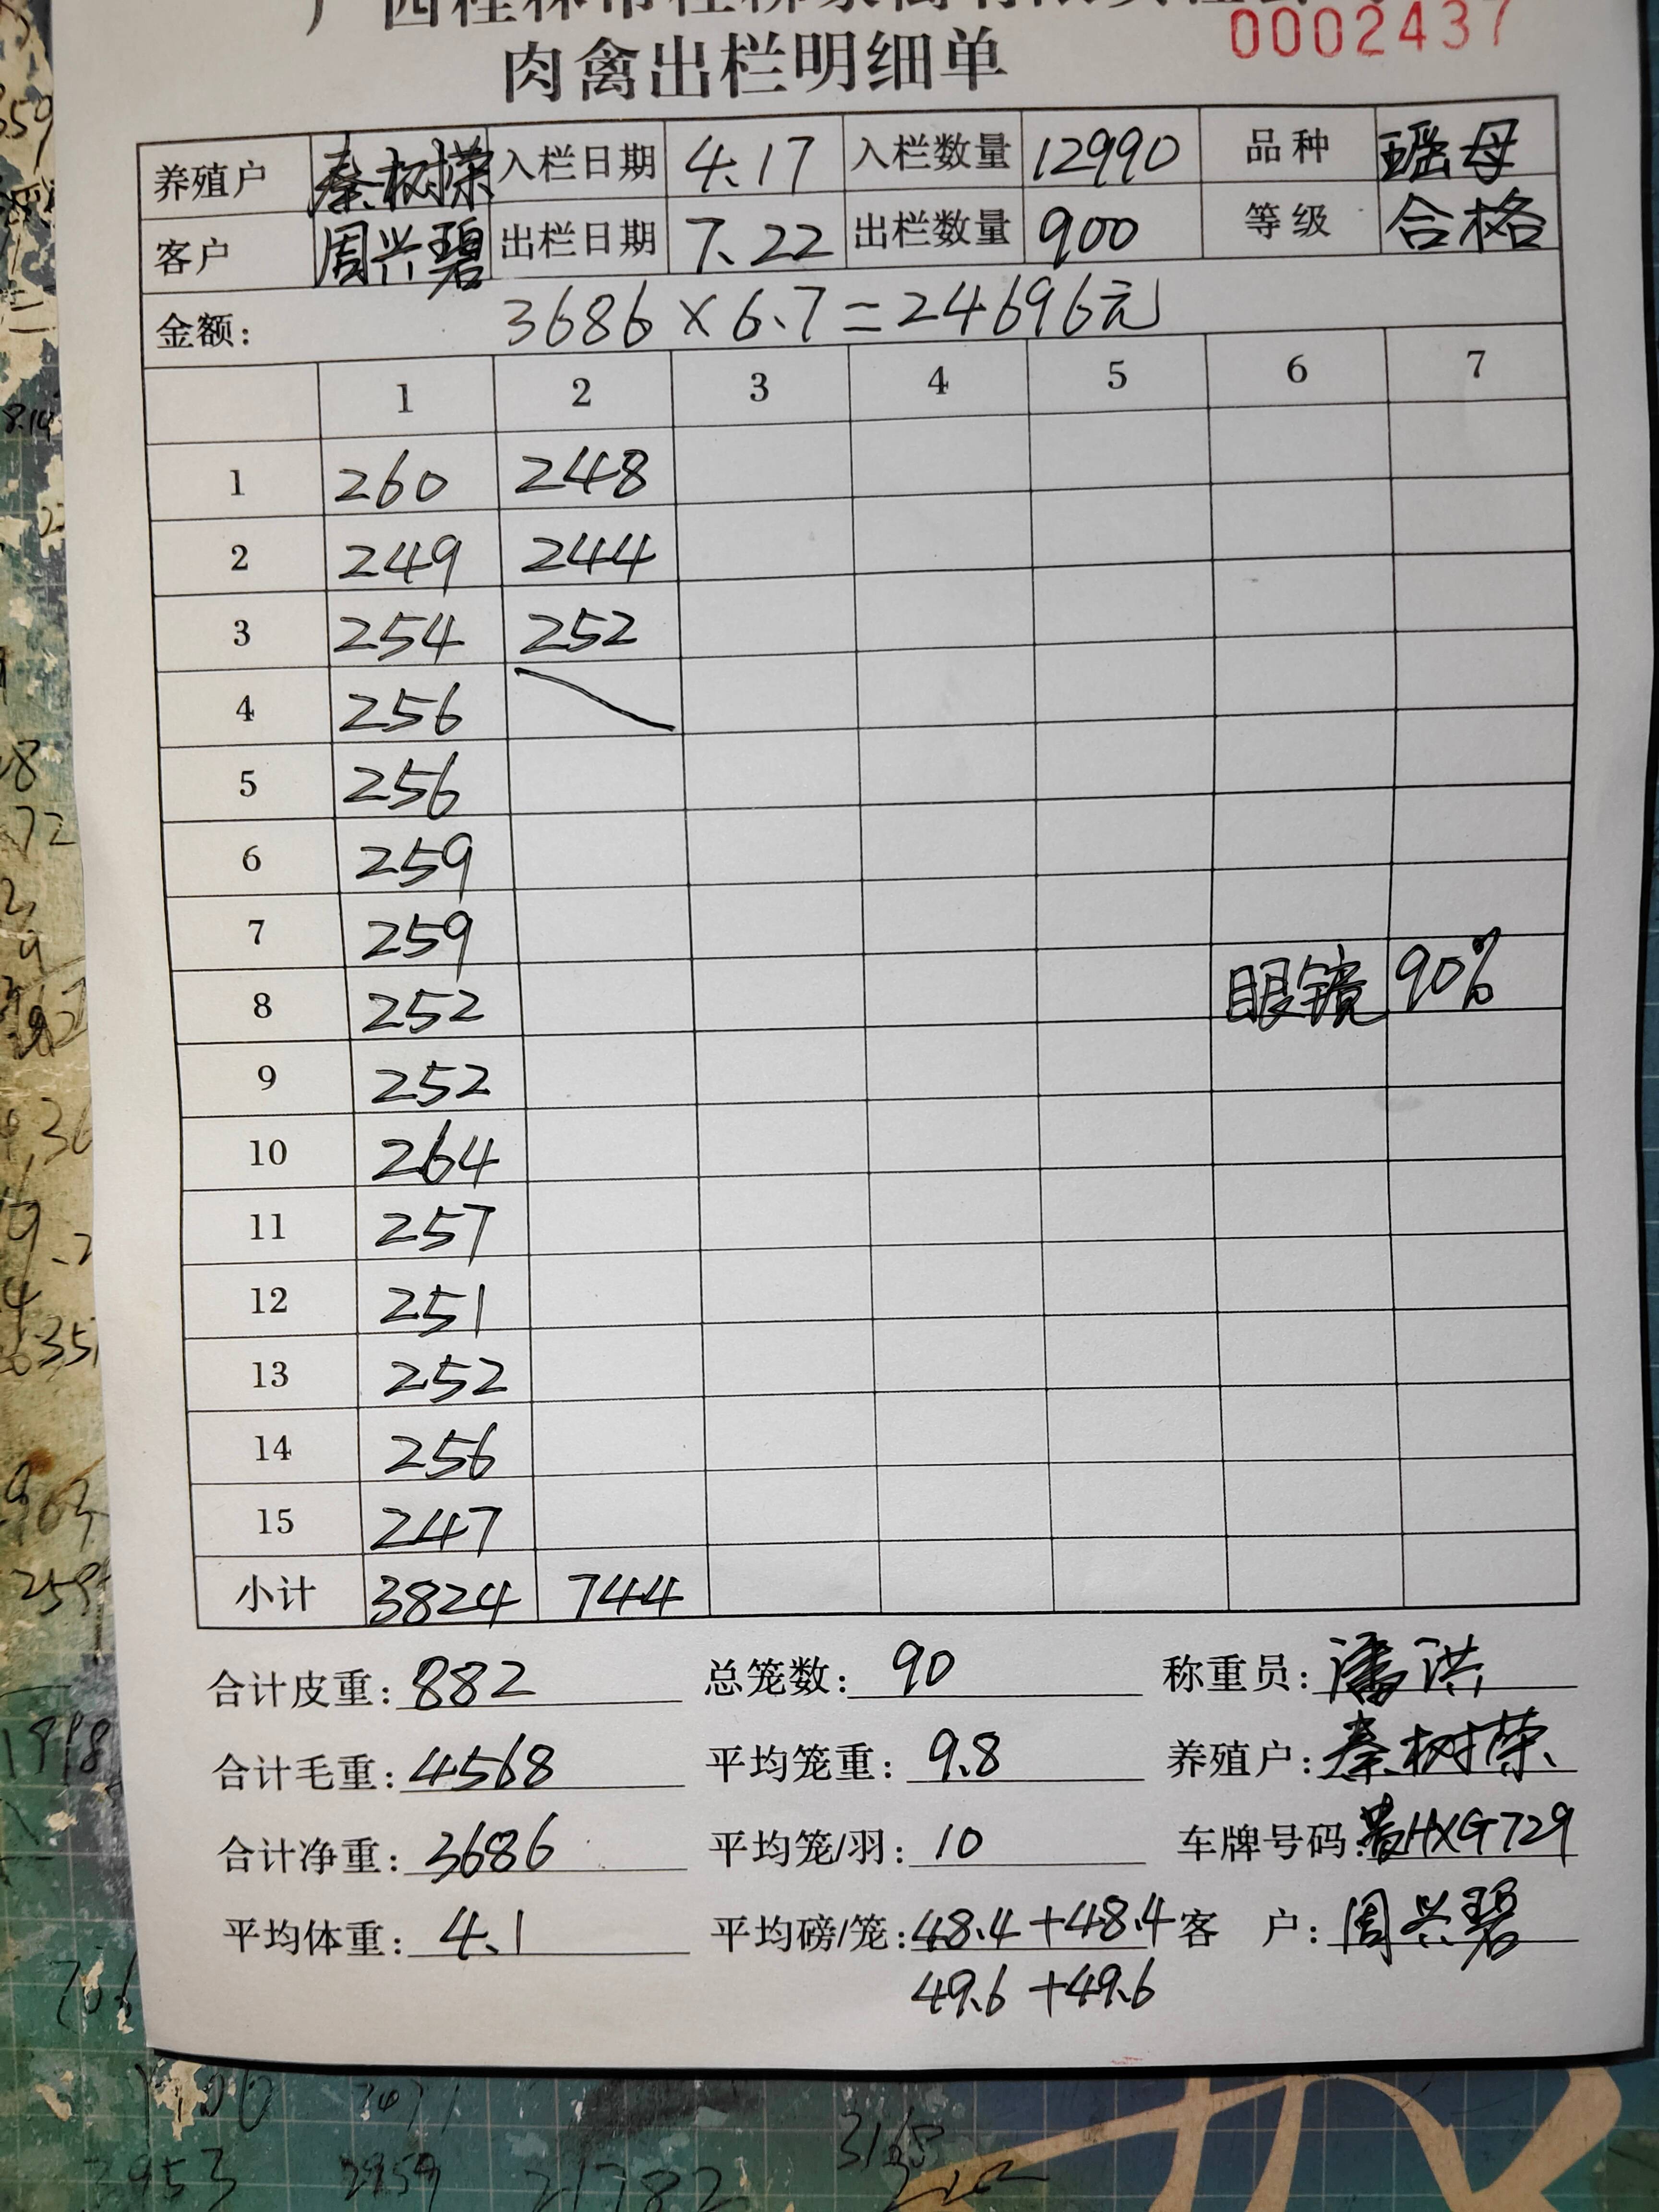 0002437
肉禽出栏明细单
养殖户 秦树荣 入栏日期 4.17 入栏数量 12990 品种 瑶母
客户 周兴碧 出栏日期 7.22 出栏数量 900 等级 合格
金额: 3686×6.7=24696元
1 2 3 4 5 6 7
1 260 248
2 249 244
3 254 252
4 256
5 256
6 259
7 259
8 252 眼镜 90%
9 252
10 264
11 257
12 251
13 252
14 256
15 247
小计 3824 744
合计皮重: 882 总笼数: 90 称重员: 潘洪
合计毛重: 4568 平均笼重: 9.8 养殖户: 秦树荣
合计净重: 3686 平均笼/羽: 10 车牌号码: HXG729
平均体重: 4.1 平均磅/笼: 48.4+48.4 客户: 周兴碧
49.6+49.6